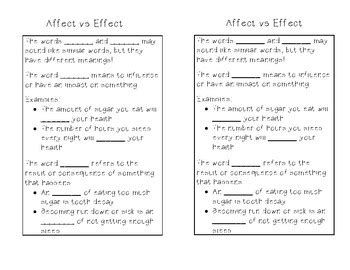 Affect vs Effect
The words ________ and ________ may
sound like similar words, but they
have different meanings!
The word ________ means to influence or
have an impact on something
Examples:
• The amount of sugar you eat will
________ your health
• The number of hours you sleep
every night will ________ your
health
The word ________ refers to the
result or consequence of something
that happens
• An ________ of eating too much
sugar is tooth decay
• Becoming run down or sick is an
________ of not getting enough
sleep
Affect vs Effect
The words ________ and ________ may
sound like similar words, but they
have different meanings!
The word ________ means to influence
or have an impact on something
Examples:
• The amount of sugar you eat
will ________ your health
• The number of hours you sleep
every night will ________ your
health
The word ________ refers to the
result or consequence of something
that happens
• An ________ of eating too much
sugar is tooth decay
• Becoming run down or sick is an
________ of not getting enough
sleep